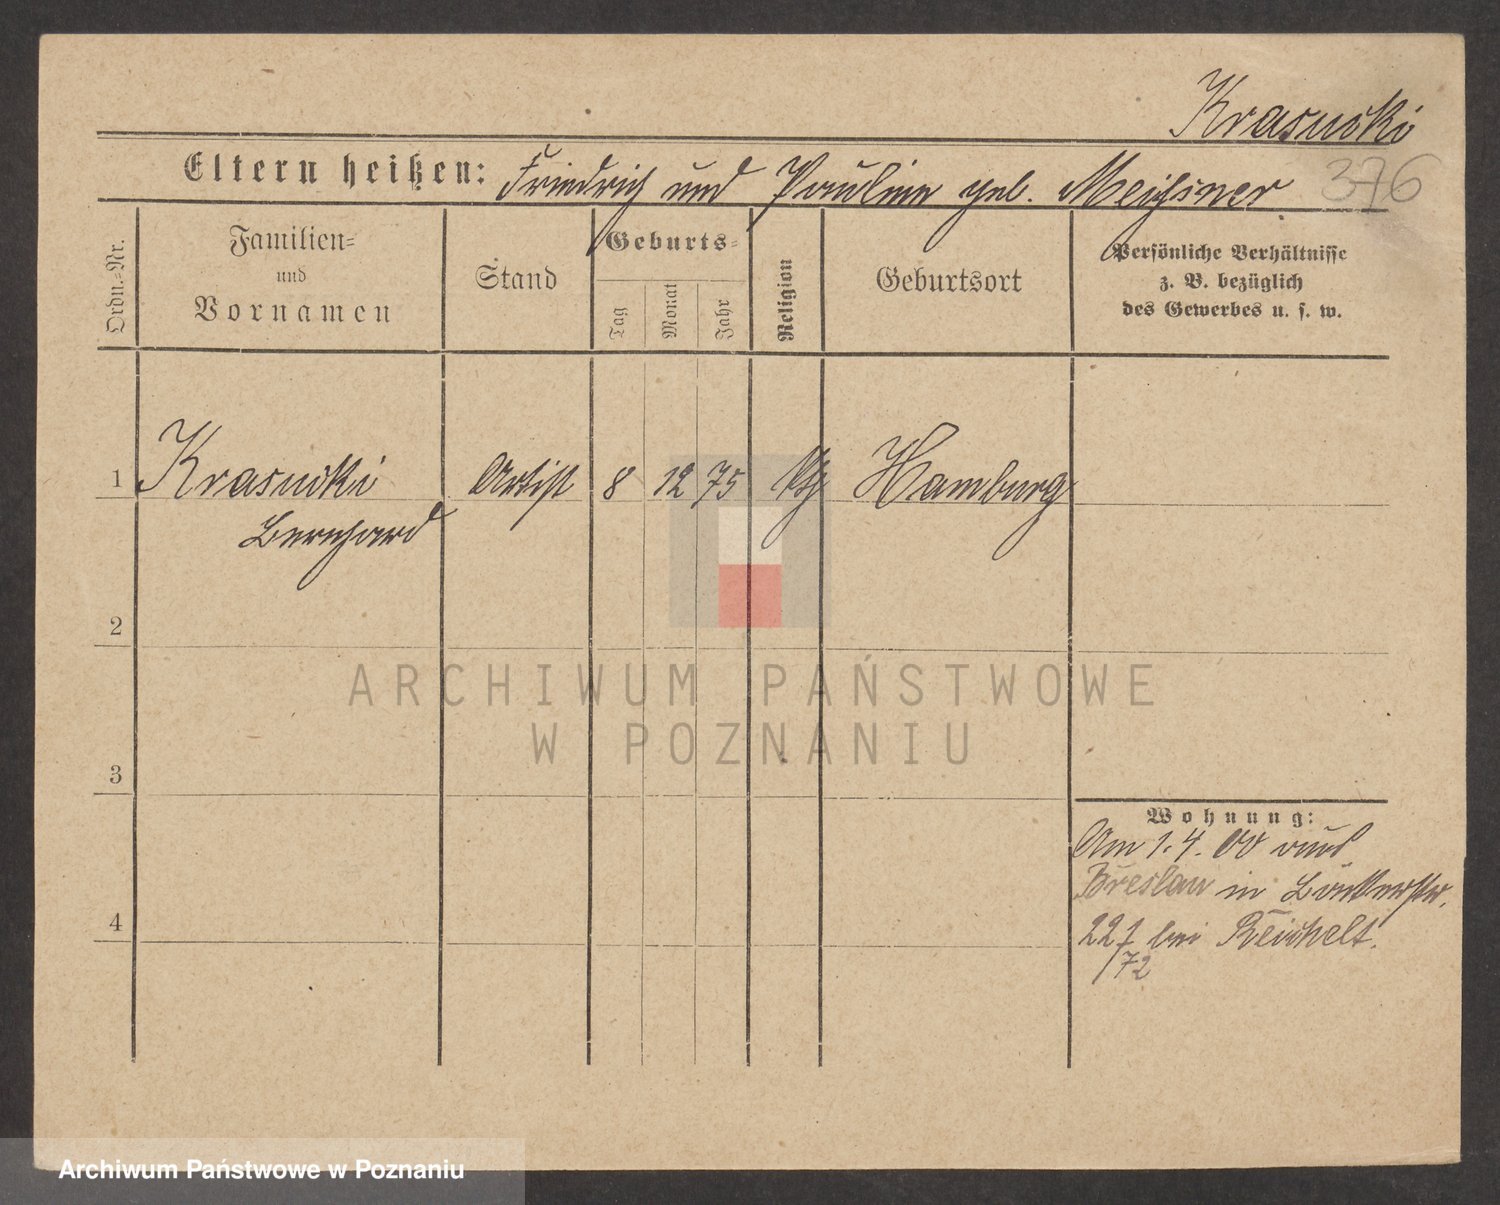 Krasnicki
Eltern heißen: Friedrich und Pauline geb. Meißner
376
Ordn.-Nr.
Familien-
und
Vornamen
Stand
Geburts-
Tag
Monat
Jahr
Religion
Geburtsort
Persönliche Verhältnisse
z. B. bezüglich
des Gewerbes u. s. w.
1 Krasnicki Artist 8 12 75 Hamburg
Bernhard
2
ARCHIWUM PAŃSTWOWE
W POZNANIU
3
Wohnung:
Am 1. 4. 00 aus
Breslau in
22 I bei Reichelt.
72
4
Archiwum Państwowe w Poznaniu